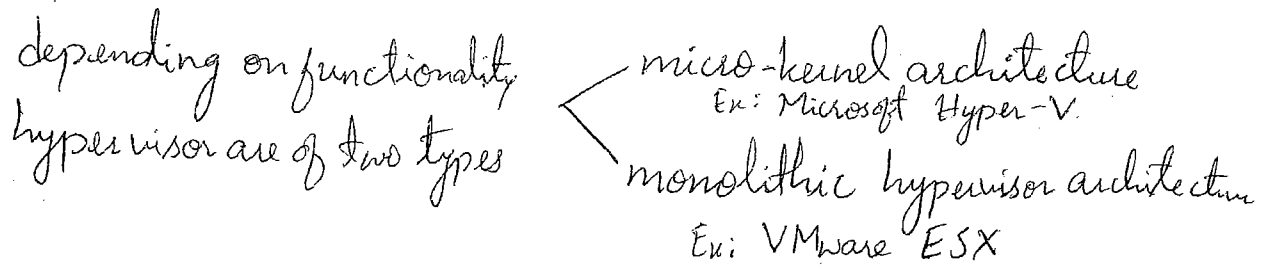 depending on functionality
hypervisor are of two types
micro-kernel architecture
Ex: Microsoft Hyper-V.
monolithic hypervisor architecture
Ex: VMware ESX